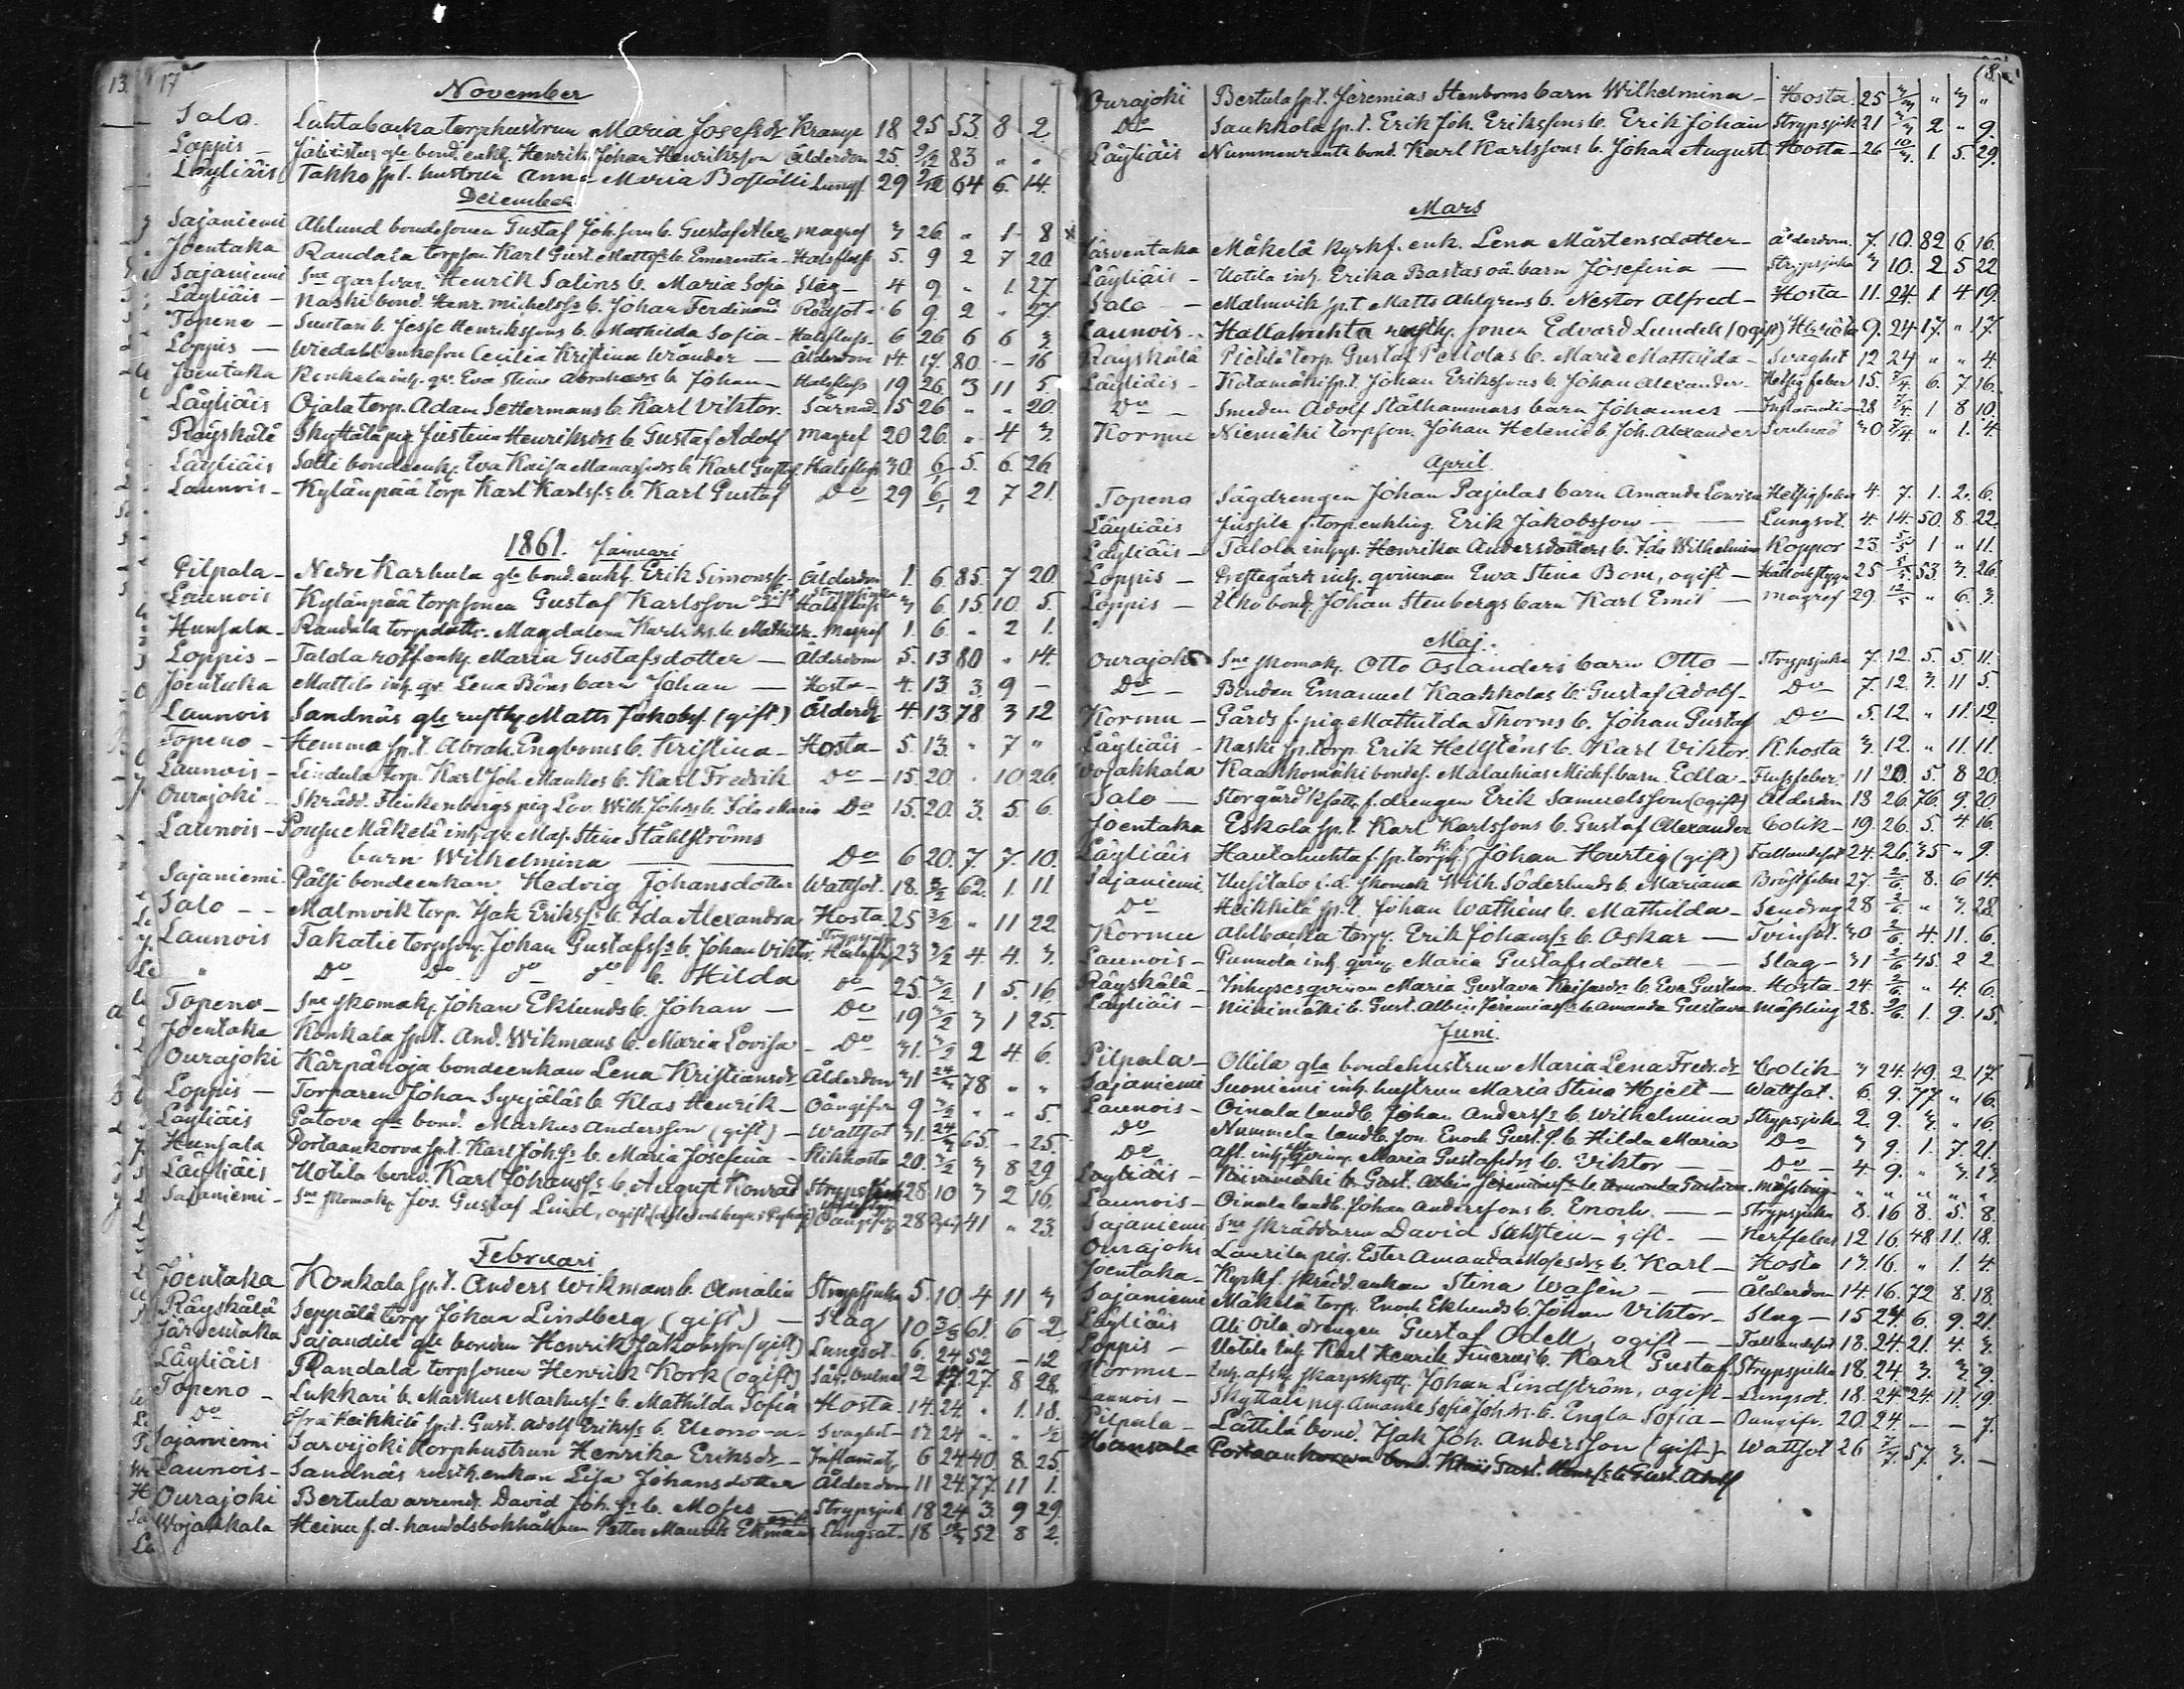 13. 17
November
Salo. Luhtabacka torphustrun Maria Josefsdr Krampr 18 25 53. 8 2.
Loppis – gle bond. enkl. Henrik Johan Henriksson Ålderdom 25. 9/12 83 " "
Läyliäis Takko spt. hustrun Anna Maria Lungs. 29 9/12 64 6. 14.
December
Sajaniemi Ahlund bondesonen Gustaf Johssons b. Gustaf Alex. Magref 3 26 " 1 8
Joentaka Randala torpson Karl Gust. Mattss. b. Emerentia – Halsfluss 5. 9 2 7 20
Sajaniemi Sne garfvar. Henrik Salins b. Maria Sofia Slag – 4 9 " 1 27
Läyliäis – Naski bond. Henr. Michelss. b. Johan Ferdinand Rödsot – 6 9 2 " 27
Topeno – Suutari b. Jesse Henrikssons b. Mathilda Sofia – Halsfluss – 6 26 6 6 3
Loppis – Wredahl enkefru Cecilia Kristina Wrander – Ålderdom 14. 17. 80. – 16
Joentaka Konkala inh. qv. Eva Stina Abrahdrs b. Johan – Halsfluss 19 26 3 11 5.
Läyliäis Ojala torp. Adam Settermans b. Karl Viktor. Sårnad – 15 26 " " 20.
Räyskälä Skyttälä pig. Justina Henriksdrs b. Gustaf Adolf Magref 20 26. " 4 3.
Läyliäis Salli bondeenk. Eva Kaisa Manassedrs b. Karl Gustaf Halsfluss 30. 6/1 5. 6. 26
Launois – Kylänpää torp. Karl Karlss. b. Karl Gustaf Do 29 6/1 2 7 21.
1861. Januari
Pilpala – Nedre Karhula gle bond. enkl. Erik Simonss. – Ålderdom 1. 6. 85. 7 20.
Launois Kylänpää torpsonen Gustaf Karlsson ogift Halsfluss 3 6. 15. 10. 5.
Hunsala – Randala torpdottr. Magdalena Karlsdrs. b. Mathilda – Magref 1. 6. " 2 1.
Loppis – Talola rotfenk. Maria Gustafsdotter – Ålderdom 5. 13 80 " 14.
Joentaka Mattila inh. qv. Lena Böns barn Johan – Hosta – 4. 13. 3. 9 –
Launois Sandnäs gle rusth. Matts Jakobss. (gift) Ålderd. 4. 13 78 3 12
Topeno – Hemma sp.t. Abrah. Engboms b. Kristina – Hosta – 5. 13. " 7 "
Launois – Lindula torp. Karl Joh. Mankes b. Karl Fredrik Do – 15. 20. " 10 26.
Ourajoki – Skrädd. Flinkenbergs pig Lov. Wilh. Johdrs b. Ida Maria Do 15. 20. 3. 5. 6.
Launois – Mäkelä inh. qv. Maj. Stina Ståhlströms
barn Wilhelmina – Do 6 20. 7. 7. 10.
Sajaniemi. Pätsi bondeenkan Hedvig Johansdotter Wattsot. 18. 3/2 62. 1. 11
Salo – – Malmvik torp. Isak Erikss. b. Ida Alexandra Hosta. 25 3/2 " 11 22
Launois Takatie torpson. Johan Gustafss. b. Johan Viktor. Strypsjuk 23 3/2 4. 4. 3.
" Do Do Do Do b. Hilda Do 25. 3/2 1 5. 16
Topeno – Sne skomak. Johan Eklunds b. Johan – Do 19 3/2 3 1 25.
Joentaka Konkala sp.t. And. Wikmans b. Maria Lovisa – Do – 31. 3/2 2 4. 6.
Ourajoki Kärpänoja bondeenkan Lena Kristiansdr Ålderdom 31 24/2 78 " "
Loppis – Torparen Johan Syrjäläs b. Klas Henrik – Oångifven 9 3/2 " " 5.
Läyliäis Patova gle bond. Markus Andersson (gift) – Wattsot 31. 24/2 65. – 25.
Hunsala Portaankorva spt. Karl Johss. b. Maria Josefina – Kikhosta 20. 3/2 3 8 29
Läyliäis Uotila bond. Karl Johanss. b. August Konrad Strypsjuk 28 10 3 2 16.
Sajaniemi – Sne skomak. Jos. Gustaf Lind, ogift Oångifven 28 41 " 23.
Februari
Joentaka Konkala sp.t. Anders Wikmans b. Amalia Strypsjuka 5. 10. 4 11 3
Räyskälä Seppälä torp. Johan Lindberg (gift) – Slag 10 3/3 61. 6 2
Järventaka Sajandila gle bonden Henrik Jakobsson (gift) Lungsot – 6. 24 52 – 12
Läyliäis Randala torpsonen Henrik Kork (ogift) Sår. Bulnad 2 17. 27. 8 28.
Topeno – Lukkari b. Markus Markuss. b. Mathilda Sofia Hosta. 14. 24. " 1. 18.
Do Öfra Heikkilä spt. Gust. Adolf Erikss. b. Eleonora – Svaghet – 17 24 " " ½
Sajaniemi Sarvijoki torphustrun Henrika Eriksdr – Inflamat. 6 24. 40. 8. 25.
Launois – Sandnäs rusth. enkan Lisa Johansdotter Ålderdom 11 24. 77. 11 1.
Ourajoki Bertula arrend. David Joh. ss. b. Moses – Strypsjuk 18 24 3. 9 29.
Wojakkala Heinu f.d. handelsbokhållaren Petter Maurits Ekman ogift Lungsot – 18. 52 8 2.
18.
Ourajoki Bertula sp.t. Jeremias Stenboms barn Wilhelmina – Hosta. 25 3/3 " 3 "
Do Saukkola sp.t. Erik Joh. Erikssons b. Erik Johan Strypsjuk 21 3/3 2 " 9.
Läyliäis Nummenranta bond. Karl Karlssons b. Johan August Hosta – 26 10/3. 1. 5. 29.
Mars
Järventaka Mäkelä kyrkf. enk. Lena Mårtensdotter – Ålderdom. 7. 10. 82 6 16.
Läyliäis – Uotila inh. Erika Bastas oä barn Josefina – Strypsjuka 3 10. 2 5 22
Salo – Malmvik sp.t. Matts Ahlgrens b. Nestor Alfred – Hosta – 11. 24. 1 4. 19.
Launois – Hallakuhta rusth. sonen Edvard Lundell (ogift) 9. 24. 17. " 17.
Räyskälä torp. Gustaf b. Maria Mathilda – Svaghet 12 24 " " 4.
Läyliäis – Kotamäki sp.t. Johan Erikssons b. Johan Alexander – Hetsig feber 15. 7/4. 6. 7. 16.
Do – Smeden Adolf Stålhammars barn Johannes – Inflamation 28 7/4. 1 8 10.
Kormu Niemäki torpson. Johan Helenii b. Joh. Alexander Svulnad 30 7/4. " 1. 4.
April
Topeno Sågdrengen Johan Pajulas barn Amanda Lovisa Hetsig feber 4. 7. 1. 2. 6.
Läyliäis Jussila f. torp. enkling Erik Jakobsson – – Lungsot. 4. 14. 50. 8. 22.
Läyliäis – Talola inh. Henrika Andersdotters b. Ida Wilhelmina Koppor 23. 5/5 1 " 11.
Loppis – Prestegårds inh. qvinnan Ewa Stina Bom, ogift – Håll och stygn 25 5/5. 53. 3. 26.
Loppis – bond. Johan Stenbergs barn Karl Emil – Magref 29. 12/5 " 6. 3.
Maj.
Ourajoki Sne skomak. Otto Oslanders barn Otto – Strypsjuka 7. 12. 5. 5. 11.
Do – Bonden Emanuel Kaakkolas b. Gustaf Adolf – Do 7. 12. 3. 11 5.
Kormu – Gårds f. pig. Mathilda Thorns b. Johan Gustaf Do – 5. 12. " 11. 12.
Läyliäis – Naski sp. torp. Erik Hellsténs b. Karl Viktor. K.hosta 3. 12. " 11. 11.
Wojakkala Kaakkomäki bondes. Malachias Michs. barn Edla – Flussfeber. 11 20. 5. 8 20.
Salo – Storgård f. drengen Erik Samuelsson (ogift) Ålderdom 13 26. 76. 9. 20.
Joentaka Eskola sp.t. Karl Karlssons b. Gustaf Alexander Colik – 19. 26. 5. 4 16.
Läyliäis Hautakuhta f. sp. torp. Johan Hurtig (gift) Fallandesot 24. 26. 35 " 9.
Sajaniemi Uusitalo f.d. skomak. Wilh. Söderlunds b. Mariana Bröstfeber 27. 2/6 8. 6 14.
Do Heikkilä sp.t. Johan Wathéns b. Mathilda – Sendrag 28 2/6 " 3. 28.
Kormu Ahlbacka torp. Erik Johanss. b. Oskar – Tvinsot. 30 2/6. 4. 11. 6.
Launois – Punnola inh. qvin. Maria Gustafsdotter – – Slag – 31 2/6 45. 2 2
Räyskälä – Inhysesqvinnan Maria Gustava Kaisasdr. b. Eva Gustava. Hosta – 24. 2/6. " 4. 6.
Läyliäis – Niinimäki b. Gust. Albin Jeremiass. b. Amanda Gustava Mässling 28. 2/6. 1. 9. 15.
Juni.
Pilpala – Ollila gla bondehustrun Maria Lena Fredr. dr Colik – 3 24. 49. 2 17.
Sajaniemi Suoniemi inh. hustrun Maria Stina Hjelt – Wattsot. 6. 9. 77 " 16.
Launois – Oinala landb. Johan Anderss. b. Wilhelmina Strypsjuka 2. 9. 3. " 16.
Do Nummela landb. son. Enoch Gust. s. b. Hilda Maria Do 3 9. 1. 7. 21.
Do afl. inh. qvin. Maria Gustafsdr. b. Viktor – – Do – 4 9. " 3. 13.
Läyliäis – Niinimäki b. Gust. Albin Jeremiass. b. Amanda Gustava. Mässling " " " " "
Launois – Oinala landb. Johan Anderssons b. Enoch. – – Strypsjuka 8. 16 8. 5 8.
Sajaniemi Sne skräddaren David Sahlsten – gift – – Nerffeber 12 16. 48. 11. 18.
Ourajoki Laurila pig. Ester Amanda Mosesdrs b. Karl – Hosta 13. 16. " 1. 4.
Joentaka – Kyrkf. skrädd. enkan Stina Wasén – – Ålderdom 14. 16. 72 8. 18.
Sajaniemi Mäkelä torp. Enoch Eklunds b. Johan Viktor – Slag – 15 24. 6. 9. 21.
Läyliäis Ali Oila drengen Gustaf Odell, ogift – Fallandesot 18. 24. 21. 4. 3.
Loppis – Uotila inh. Karl Henrik b. Karl Gustaf Strypsjuka 18. 24. 3. 3. 9.
Kormu – Inh. afsk. skarpskytt. Johan Lindström, ogift – Lungsot. 18. 24. 24. 11. 19.
Launois – Skyttälä pig. Amanda Sofia Joh. drs. b. Engla Sofia – Oangifv. 20. 24. – – 7.
Pilpala – Lättilä bond. Isak Joh. Andersson (gift) – Wattsot 26 7/7. 57. 3. –
Hunsala Portaankorva bond. Klas Gust. Henrss. b. Gust. Adolf